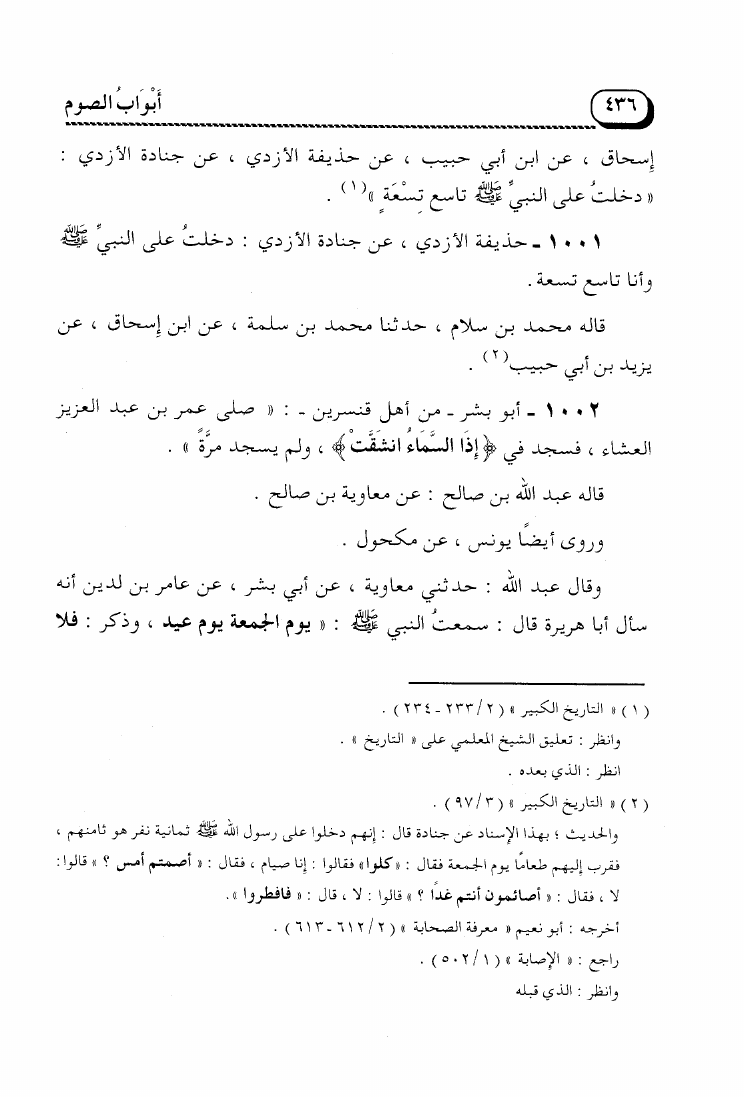 ٤٣٦
أَبْوَابُ الصوم
إسحاق ، عن ابن أبي حبيب ، عن حذيفة الأزدي ، عن جنادة الأزدي :
« دخلتُ على النبيِّ ﷺ تاسع تِسْعَةٍ »(١) .
١٠٠١ ـ حذيفة الأزدي ، عن جنادة الأزدي : دخلتُ على النبيِّ ﷺ
وأنا تاسع تسعة .
قاله محمد بن سلام ، حدثنا محمد بن سلمة ، عن ابن إسحاق ، عن
يزيد بن أبي حبيب(٢) .
١٠٠٢ ـ أبو بشر ـ من أهل قنسرين ـ : « صلى عمر بن عبد العزيز
العشاء ، فسجد في ﴿إِذَا السَّمَاءُ انشَقَّتْ﴾ ، ولم يسجد مرَّةً » .
قاله عبد الله بن صالح : عن معاوية بن صالح .
وروى أيضًا يونس ، عن مكحول .
وقال عبد الله : حدثني معاوية ، عن أبي بشر ، عن عامر بن لدين أنه
سأل أبا هريرة قال : سمعتُ النبي ﷺ : « يوم الجمعة يوم عيد ، وذكر : فلا
(١) « التاريخ الكبير » (٢/ ٢٣٣ ـ ٢٣٤) .
وانظر : تعليق الشيخ المعلمي على « التاريخ » .
انظر : الذي بعده .
(٢) « التاريخ الكبير » (٣/ ٩٧) .
والحديث ؛ بهذا الإسناد عن جنادة قال : إنهم دخلوا على رسول الله ﷺ ثمانية نفر هو ثامنهم ،
فقرب إليهم طعامًا يوم الجمعة فقال : «كلوا» فقالوا : إنا صيام ، فقال : « أصمتم أمس ؟ » قالوا :
لا ، فقال : « أصائمون أنتم غدًا ؟ » قالوا : لا ، قال : « فافطروا » .
أخرجه : أبو نعيم « معرفة الصحابة » (٢/ ٦١٢ ـ ٦١٣) .
راجع : « الإصابة » (١/ ٥٠٢) .
وانظر : الذي قبله